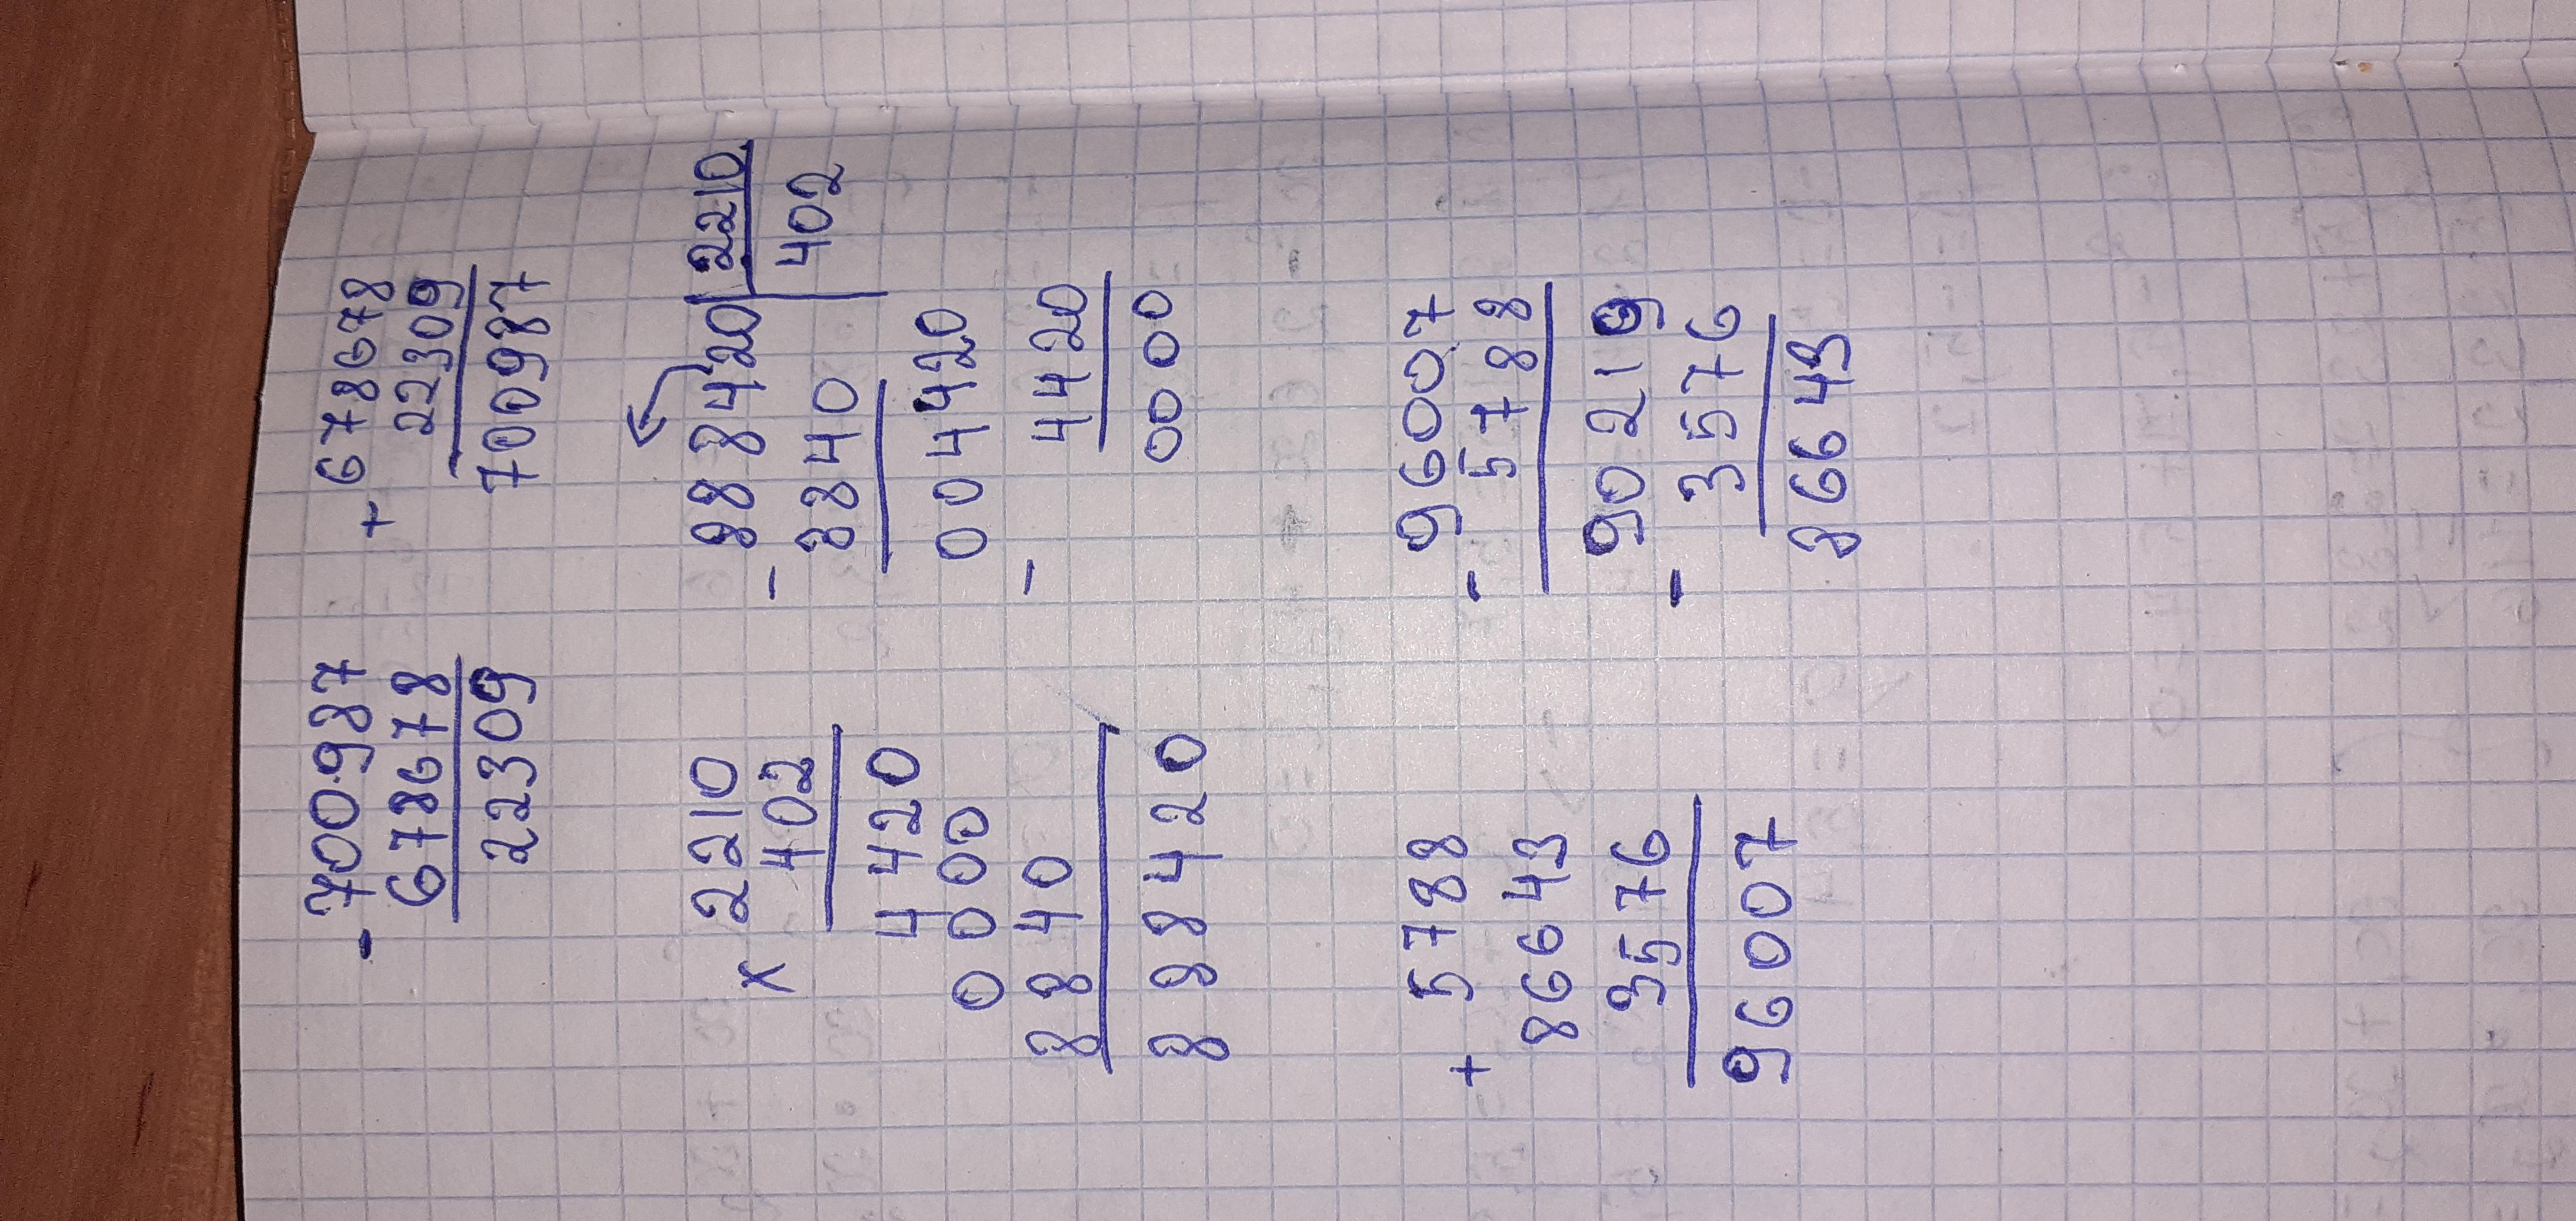 - 700987
678678
22309
+ 678678
22309
700987
x 2210
402
4420
0000
8840
888420
888420 2210
- 8840 402
004420
- 4420
0000
+ 5788
86643
3576
96007
- 96007
5788
90219
- 3576
86643